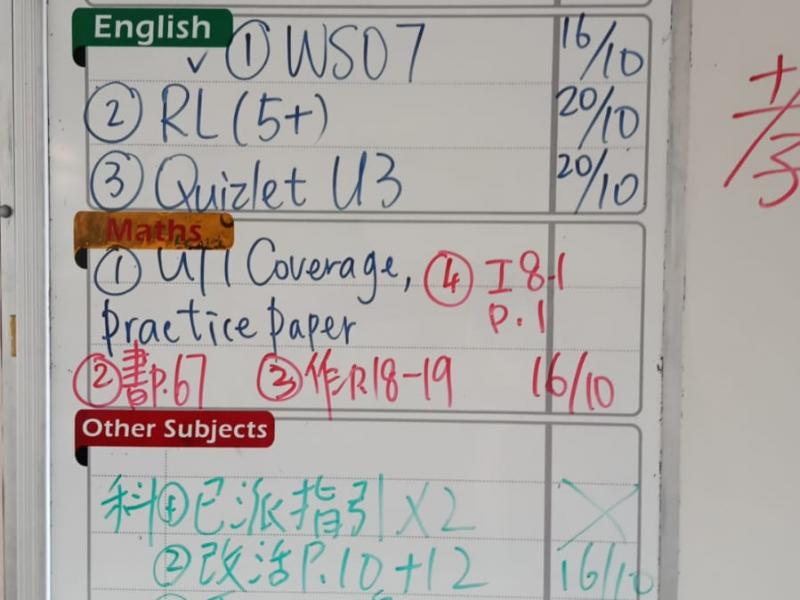 English
✓ ① WS07 16/10
② RL (5+) 20/10
③ Quizlet U3 20/10
Maths
① UT1 Coverage, ④ I 8.1
practice paper P.1
② 書P.67 ③ 作P.18-19 16/10
Other Subjects
科① 已派指引 X2
② 改活P.10+12 16/10